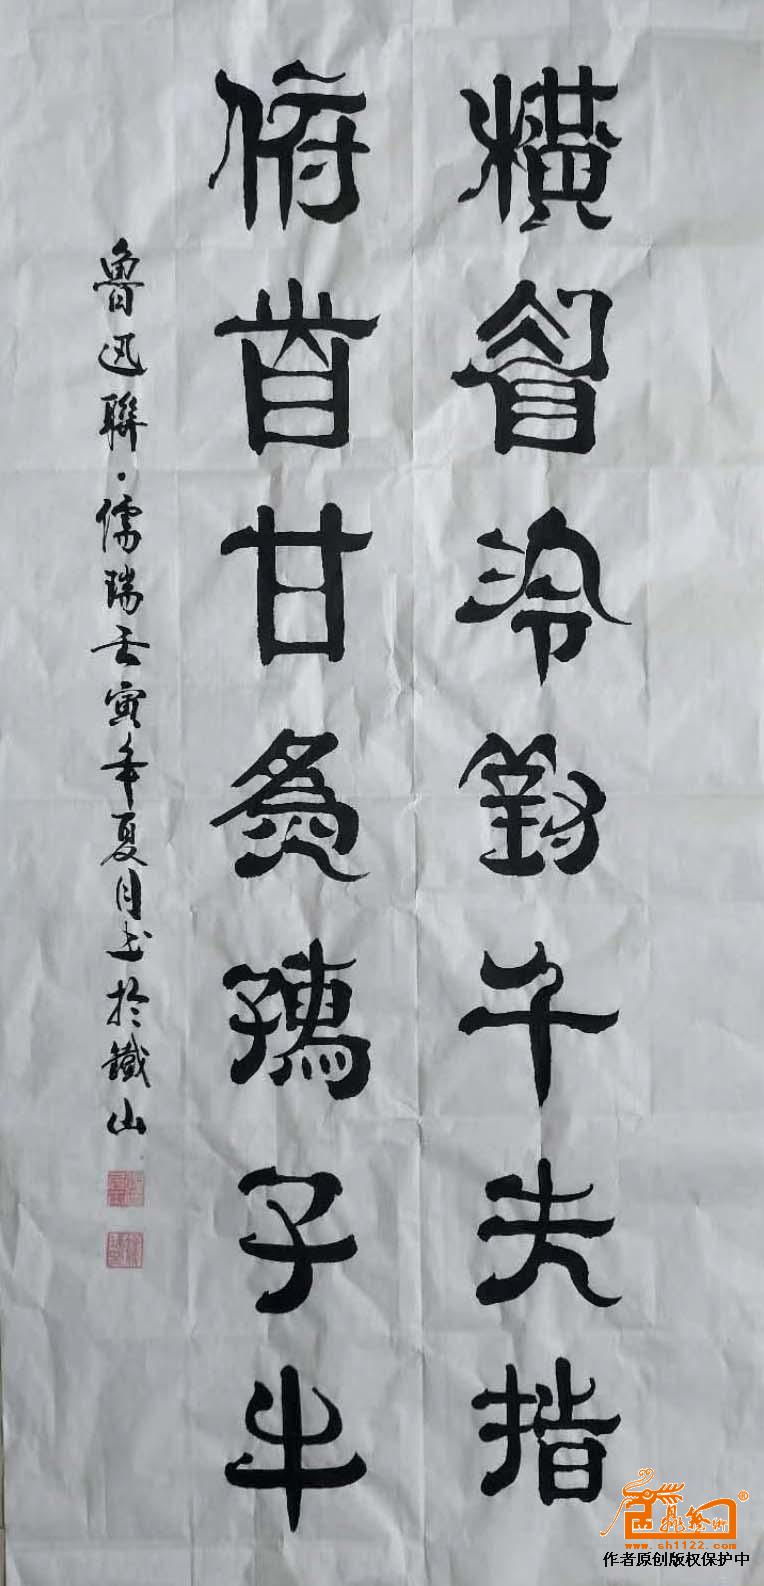 横眉冷對千夫指
俯首甘為孺子牛
魯迅聯·儒瑞壬寅年夏月书於鐵山
www.sh1122.com
作者原创版权保护中